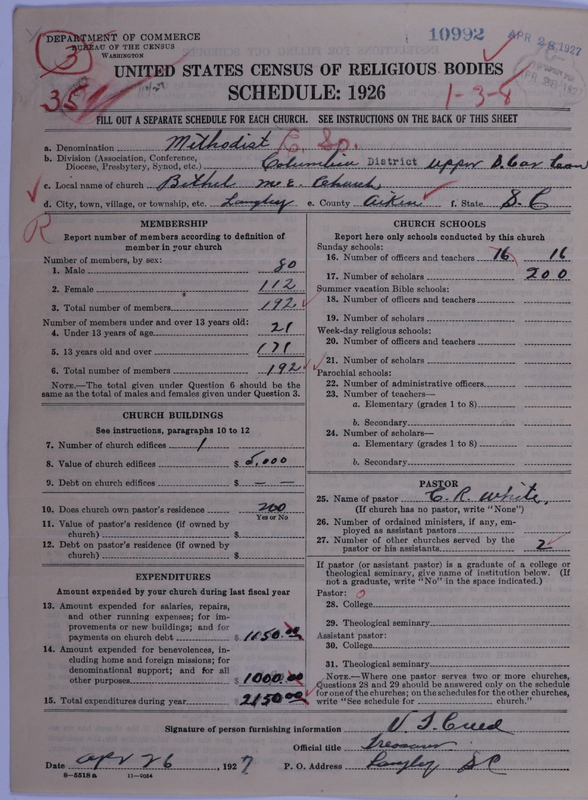 DEPARTMENT OF COMMERCE
BUREAU OF THE CENSUS
WASHINGTON
3
10992
APR 28 1927
UNITED STATES CENSUS OF RELIGIOUS BODIES
SCHEDULE: 1926
1-3-8
FILL OUT A SEPARATE SCHEDULE FOR EACH CHURCH. SEE INSTRUCTIONS ON THE BACK OF THIS SHEET
a. Denomination Methodist E. So.
b. Division (Association, Conference, Diocese, Presbytery, Synod, etc.) Columbia District Upper S. Car
c. Local name of church Bethel M. E. Church
d. City, town, village, or township, etc. Langley e. County Aiken f. State S. C
R
MEMBERSHIP
Report number of members according to definition of
member in your church
Number of members, by sex:
1. Male 80
2. Female 112
3. Total number of members 192
Number of members under and over 13 years old:
4. Under 13 years of age 21
5. 13 years old and over 171
6. Total number of members 192
NOTE.—The total given under Question 6 should be the
same as the total of males and females given under Question 3.
CHURCH BUILDINGS
See instructions, paragraphs 10 to 12
7. Number of church edifices 1
8. Value of church edifices $ 5,000
9. Debt on church edifices $ — —
10. Does church own pastor's residence no
Yes or No
11. Value of pastor's residence (if owned by
church) $
12. Debt on pastor's residence (if owned by
church) $
EXPENDITURES
Amount expended by your church during last fiscal year
13. Amount expended for salaries, repairs,
and other running expenses; for im-
provements or new buildings; and for
payments on church debt $ 1150.00
14. Amount expended for benevolences, in-
cluding home and foreign missions; for
denominational support; and for all
other purposes $ 1000.00
15. Total expenditures during year $ 2150.00
CHURCH SCHOOLS
Report here only schools conducted by this church
Sunday schools:
16. Number of officers and teachers 16 16
17. Number of scholars 200
Summer vacation Bible schools:
18. Number of officers and teachers
19. Number of scholars
Week-day religious schools:
20. Number of officers and teachers
21. Number of scholars
Parochial schools:
22. Number of administrative officers
23. Number of teachers—
a. Elementary (grades 1 to 8)
b. Secondary
24. Number of scholars—
a. Elementary (grades 1 to 8)
b. Secondary
PASTOR
25. Name of pastor C. R. White,
(If church has no pastor, write "None")
26. Number of ordained ministers, if any, em-
ployed as assistant pastors
27. Number of other churches served by the
pastor or his assistants 2
If pastor (or assistant pastor) is a graduate of a college or
theological seminary, give name of institution below. (If
not a graduate, write "No" in the space indicated.)
Pastor: 0
28. College
29. Theological seminary
Assistant pastor:
30. College
31. Theological seminary
NOTE.—Where one pastor serves two or more churches,
Questions 28 and 29 should be answered only on the schedule
for one of the churches; on the schedules for the other churches,
write "See schedule for church."
Signature of person furnishing information
Official title Treasurer
Date Apr 26, 1927 P. O. Address Langley SC
8-5518 a 11-9054